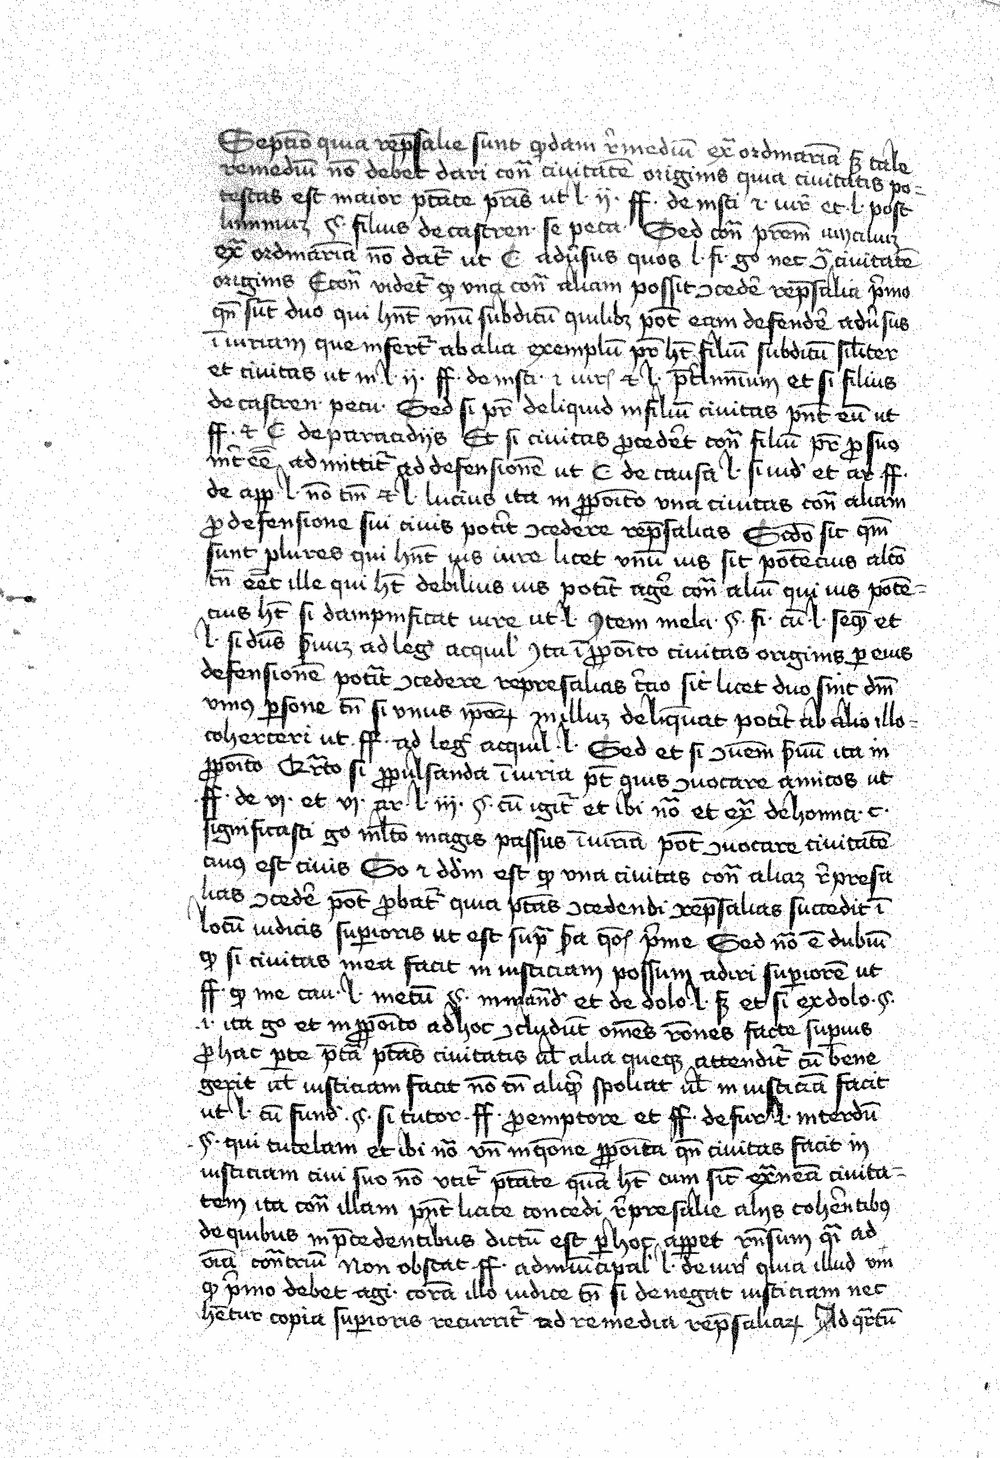 Septĩo quia rep̃salie sunt q̃dam r̃mediũ ex̃ordinariã ʒ tale
remediũ nõ debet dari con̄ civitatẽ originis quia civitatis po=
testas est maior p̃tate p̃ris ut l. ij. ff. de iusti. ⁊ iur̃ et l. post
liminiuʒ §. filius de castren. se pecu. Sed con̄ p̃rem
ex̃ordinariã nõ dat̃ ut C adv̾sus quos l. fi. go nec ꝯ̃ civitatẽ
originis Econ̄ videt̃ ꝙ una con̄ aliam possit ꝯceder̃ rep̃salia p̃mo
qn̄ sũt duo qui hñt vnũ subditũ quilibʒ põt eam defender̃ adv̾sus
ĩiuriam que infert̃ ab alia exemplũ pr̃ hʒ filiũ subditũ sil̃iter
et civitas ut in l. ij. ff. de iusti. ⁊ iur̃ et l. p̃tliminium et si filius
de castren. pecu. Sed si pr̃ deliquid in filiũ civitas pñt eũ ut
ff. et C de paracidijs Et si civitas ꝓceder̃t con̄ filiũ pr̃ ꝓ suo
int̃eẽ admittit̃ ad defensionẽ ut C de causa l. si iud̾ et ar. ff.
de app̃ l. nõ tm̃ et l. lucius ita in ꝓpõito vna civitas con̄ aliam
ꝓ defensione sui civis potĩt ꝯcedere rep̃salias Scdõ sic qm̃
sunt plures qui hñt ius iure licet vnũ ius sit potẽcius altõ
tñ eẽt ille qui hʒ debilius ius potĩt ager̃ con̄ aliũ qui ius potẽ=
cius hʒ si dampnificat iure ut l. Item mela. §. fi. cũ l. seq̃ et
l. si dũs s̾vuʒ ad leg̾ acquil̾ Ita ĩ ꝓpõito civitas originis ꝑ eius
defensionẽ potĩt ꝯcedere represalias t̾cio sic licet duo sint dñi
vniꝰ ꝑsone tñ si vnus ipoꝝ in illuʒ delinquat potĩt ab alio illo=
coherceri ut ff. ad leg̾ acquil. l. Sed et si ꝯuem̃ s̾vũ ita in
ꝓpõito Qr̃to si ꝓpulsanda ĩiuria põt quis ꝯuocare amicos ut
ff. de vi. et vi ar. l. iij. §. cũ igit̃ et ibi nõ et ex̃ de homi. c.
significasti go ml̃to magis passus ĩiuriã põt ꝯuocare civitatẽ
cuiꝰ est civis So ⁊ dd̾m est ꝙ vna civitas con̄ aliaʒ r̃presa
lias ꝯceder̃ põt ꝓbat̃ quia p̃tãs ꝯcedendi rep̃salias succedit ĩ
locũ iudicis suꝑioris ut est sup̃ s̾a q̃õe p̃me Sed nõ ẽ dubiũ
ꝙ si civitas mea facit in iusticiam possum adiri suꝑiorẽ ut
ff. ꝙ me cau. l. metũ §. et de dolo l. ʒ et si ex dolo. §.
i. ita go et in ꝓpõito ad hoc ꝯcludũt om̃es rõnes facte supius
ꝓ hac ꝑte p̃tã p̃tãs civitatis ul̃ alia queqʒ attendit̃ cũ bene
gerit ul̃ iusticiam facit nõ tñ aliq̃ spoliat ul̃ in iusticiã facit
ut l. cũ fund̾. §. si tutor. ff. ꝓ emptore et ff. de fur. l. interdũ
§. qui tutelam et ibi nõ vñ in q̃one ꝓpõita qñ civitas facit in
iusticiam civi suo nõ vtit̃ p̃tate quã hʒ cum sit ex̃neã civita=
tem ita con̄ illam pñt licite concedi r̃presalie alijs cohẽntibꝰ
de quibus in p̃cedentibus dictũ est ꝑ hoc apꝑet rñsum q̃i ad
oĩa cont̃riũ Non obstat ff. ad municipal̾ l. de iur̃ quia illud vm̃
ꝙ p̃mo debet agi. corã illo iudice tñ si denegat iusticiam nec
hẽtur copia suꝑioris recurrit̃ ad remedia rep̃saliaꝝ Ad qr̃tũ